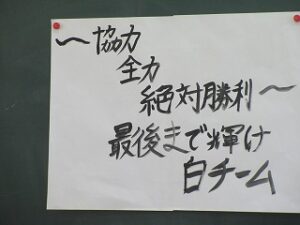 ～協力
全力
絶対勝利～
最後まで輝け
白チーム